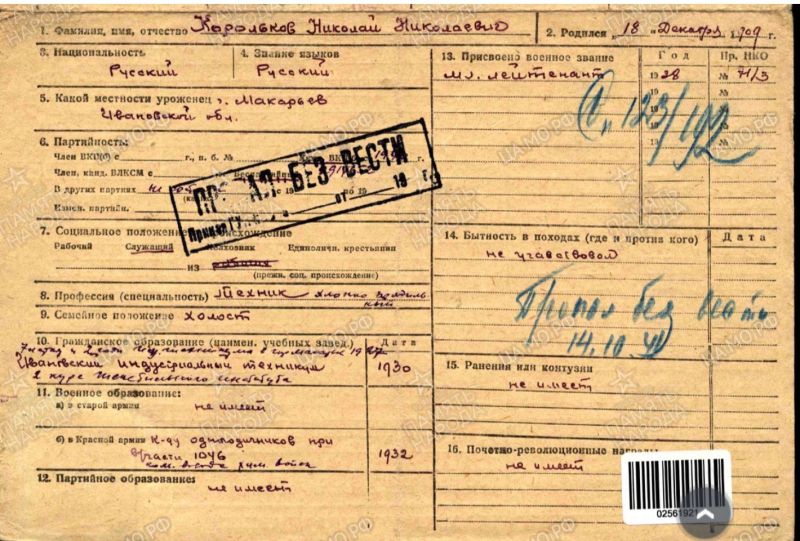 1. Фамилия, имя, отчество Корольков Николай Николаевич
2. Родился „18 „ Декабря 1909 г.
3. Национальность
Русский
4. Знание языков
Русский
5. Какой местности уроженец г. Макарьев
Ивановской обл.
6. Партийность:
Член ВКП(б) с г., п. б. №
Член, канд. ВЛКСМ с
В других партиях
Измен. партийн.
ПРОПАЛ БЕЗ ВЕСТИ
Приказ от 19 г.
7. Социальное положение
Рабочий Служащий Колхозник Единоличн. крестьянин
из
(прежн. соц. происхождение)
8. Профессия (специальность) Техник
9. Семейное положение холост
10. Гражданское образование (наимен. учебных завед.)
Дата
Ивановский индустриальный техникум
1930
2 курс
11. Военное образование:
а) в старой армии не имеет
б) в Красной армии К-ду одногодичников при
в/части 1046
1932
12. Партийное образование:
не имеет
13. Присвоено военное звание
Год
Пр. НКО
мл. лейтенант
1938
№ 71/3
19 №
19 №
19 №
19 №
123/192
14. Бытность в походах (где и против кого)
Дата
не участвовал
Пропал без вести
14.10.41
15. Ранения или контузии
не имеет
16. Почетно-революционные награды
не имеет
02561921
ПАМЯТЬ НАРОДА
ЦАМО.РФ